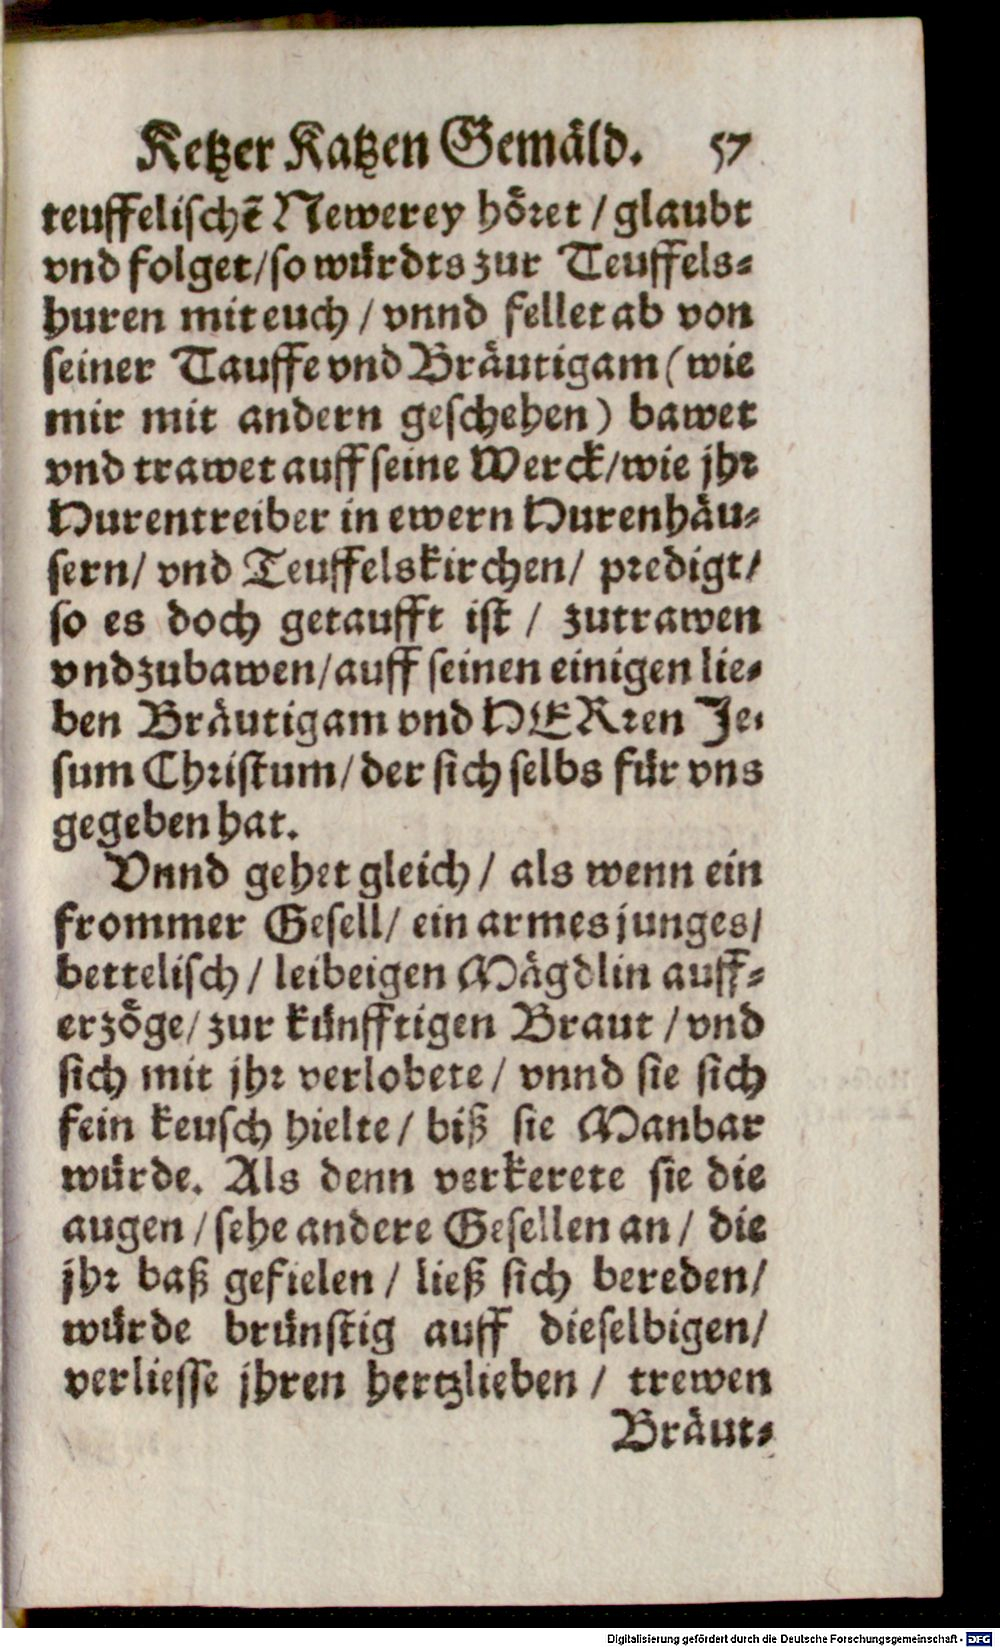 Ketzer Katzen Gemäld. 57
teuffelischẽ Newerey höret / glaubt
vnd folget/so würdts zur Teuffels-
huren mit euch / vnnd fellet ab von
seiner Tauffe vnd Bräutigam (wie
mir mit andern geschehen) bawet
vnd trawet auff seine Werck/wie jhr
Hurentreiber in ewern Hurenhäu-
sern/ vnd Teuffelskirchen/ predigt/
so es doch getaufft ist / zutrawen
vnd zubawen/auff seinen einigen lie-
ben Bräutigam vnd HERren Je-
sum Christum/der sich selbs für vns
gegeben hat.
Vnnd gehet gleich / als wenn ein
frommer Gesell/ ein armes junges/
bettelisch / leibeigen Mägdlin auff-
erzöge/ zur künfftigen Braut / vnd
sich mit jhr verlobete/ vnnd sie sich
fein keusch hielte / biß sie Manbar
würde. Als denn verkerete sie die
augen / sehe andere Gesellen an / die
jhr baß gefielen / ließ sich bereden/
würde brünstig auff dieselbigen/
verliesse jhren hertzlieben / trewen
Bräut-
Digitalisierung gefördert durch die Deutsche Forschungsgemeinschaft - DFG